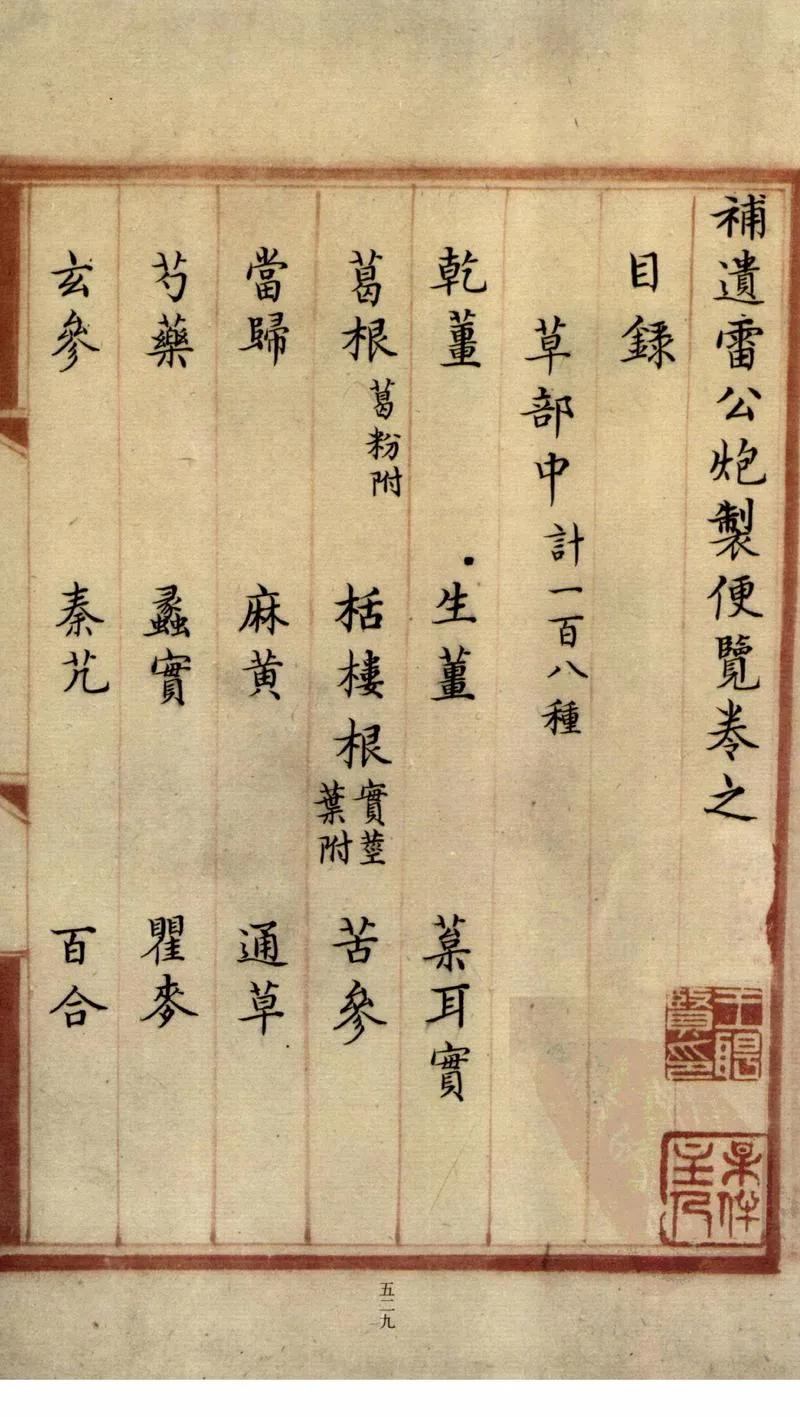 補遺雷公炮製便覽卷之
目錄
草部中 計一百八種
乾薑 生薑 葈耳實
葛根 葛粉附 栝樓根 實莖葉附 苦參
當歸 麻黃 通草
芍藥 蠡實 瞿麥
玄參 秦艽 百合
五二九